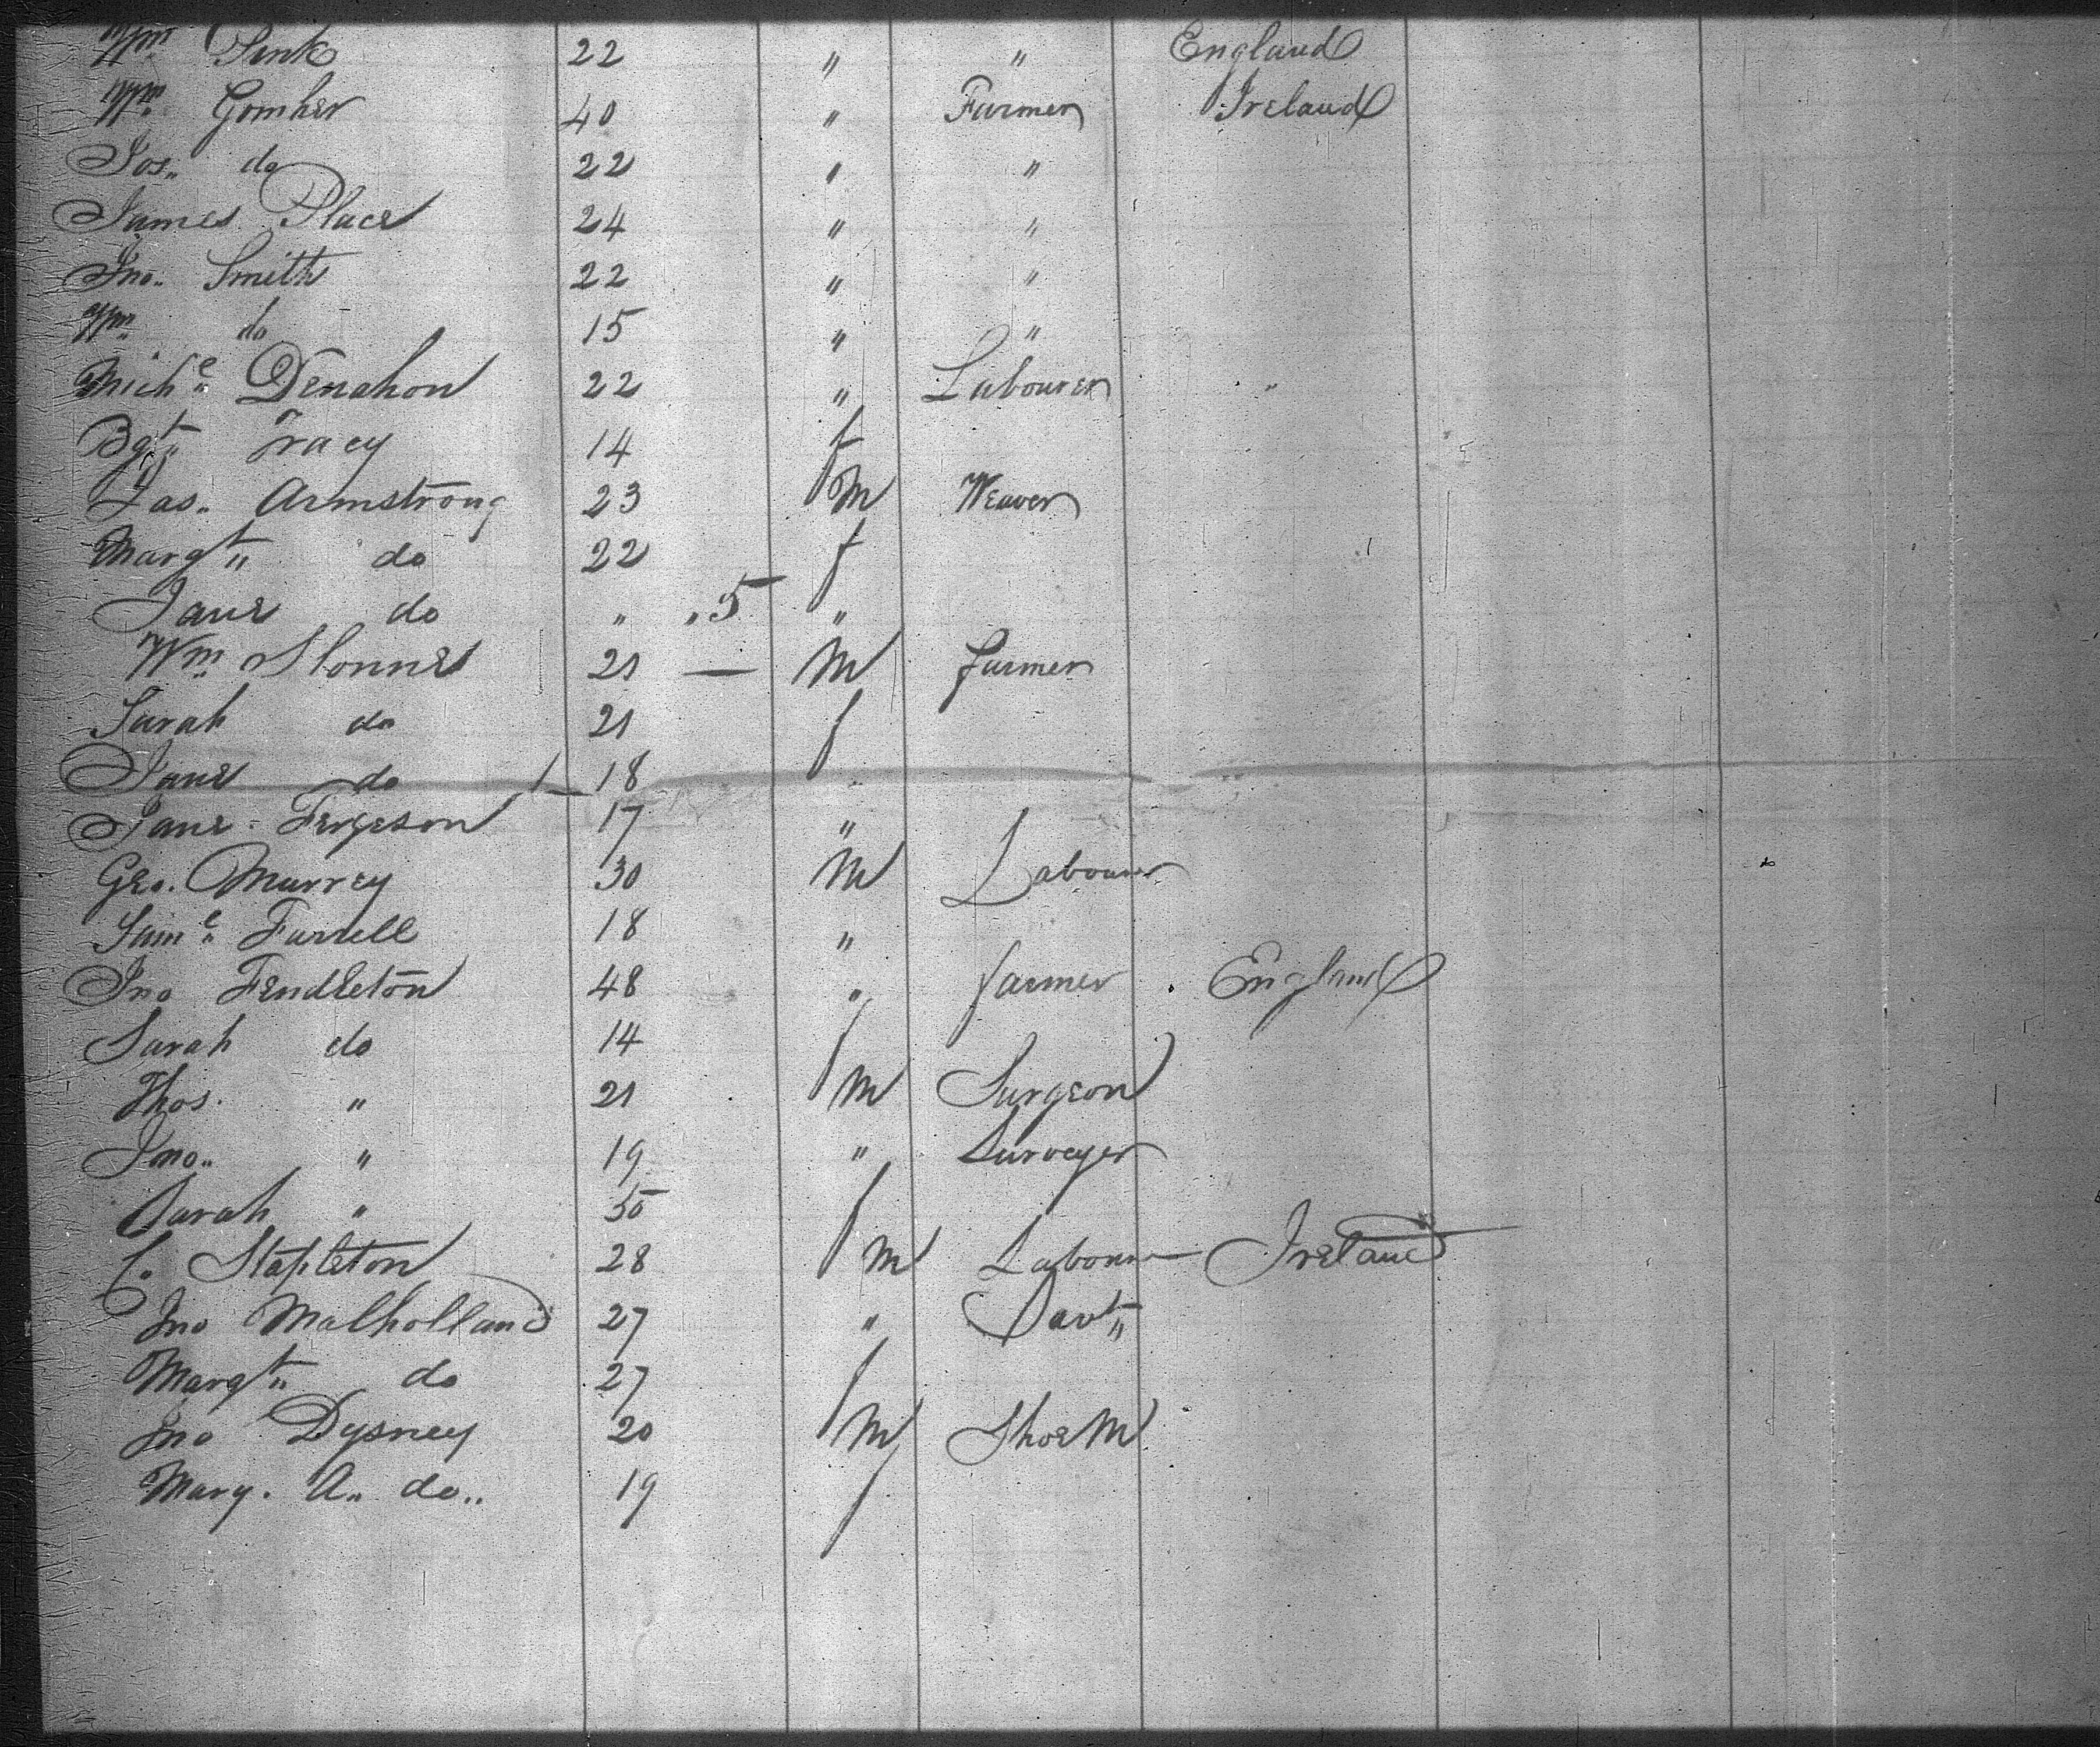 Wm Pink 22 " " England
Wm Gomher 40 " Farmer Ireland
Jos" do 22 " "
James Place 24 " "
Jno" Smith 22 " "
Wm do 15 " "
Michl Denahon 22 " Labourer "
Bgt" Tracy 14 f
Jas" Armstrong 23 M Weaver
Margt" do 22 f
Jane do " " 5 "
Wm 21 — M farmer
Sarah do 21 f
Jane do 18 "
Jane Fergeson 17 "
Geo. Murrey 30 M Labour
Saml Farrell 18 "
Jno Fendleton 48 " farmer England
Sarah do 14 f
Thos. " 21 M Surgeon
Jno" " 19 " Surveyer
Sarah " f
C. Stapleton 28 M Labour Ireland
Jno Malholland 27 "
Margt" do 27 f
Jno Dysney 20 M Shoe M
Mary. A" do" 19 f